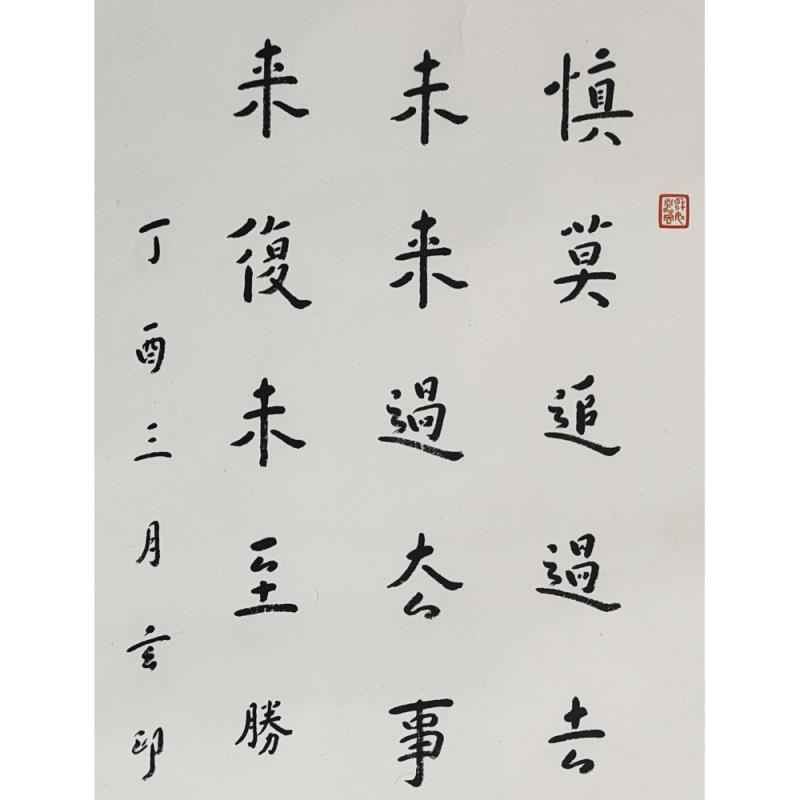 慎莫追過去
未来過厺事
来復未至勝
丁酉三月玄印